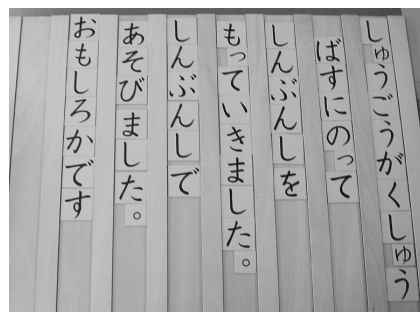 しゅうごうがくしゅう
ばすにのって
しんぶんしを
もっていきました。
しんぶんしで
あそびました。
おもしろかです